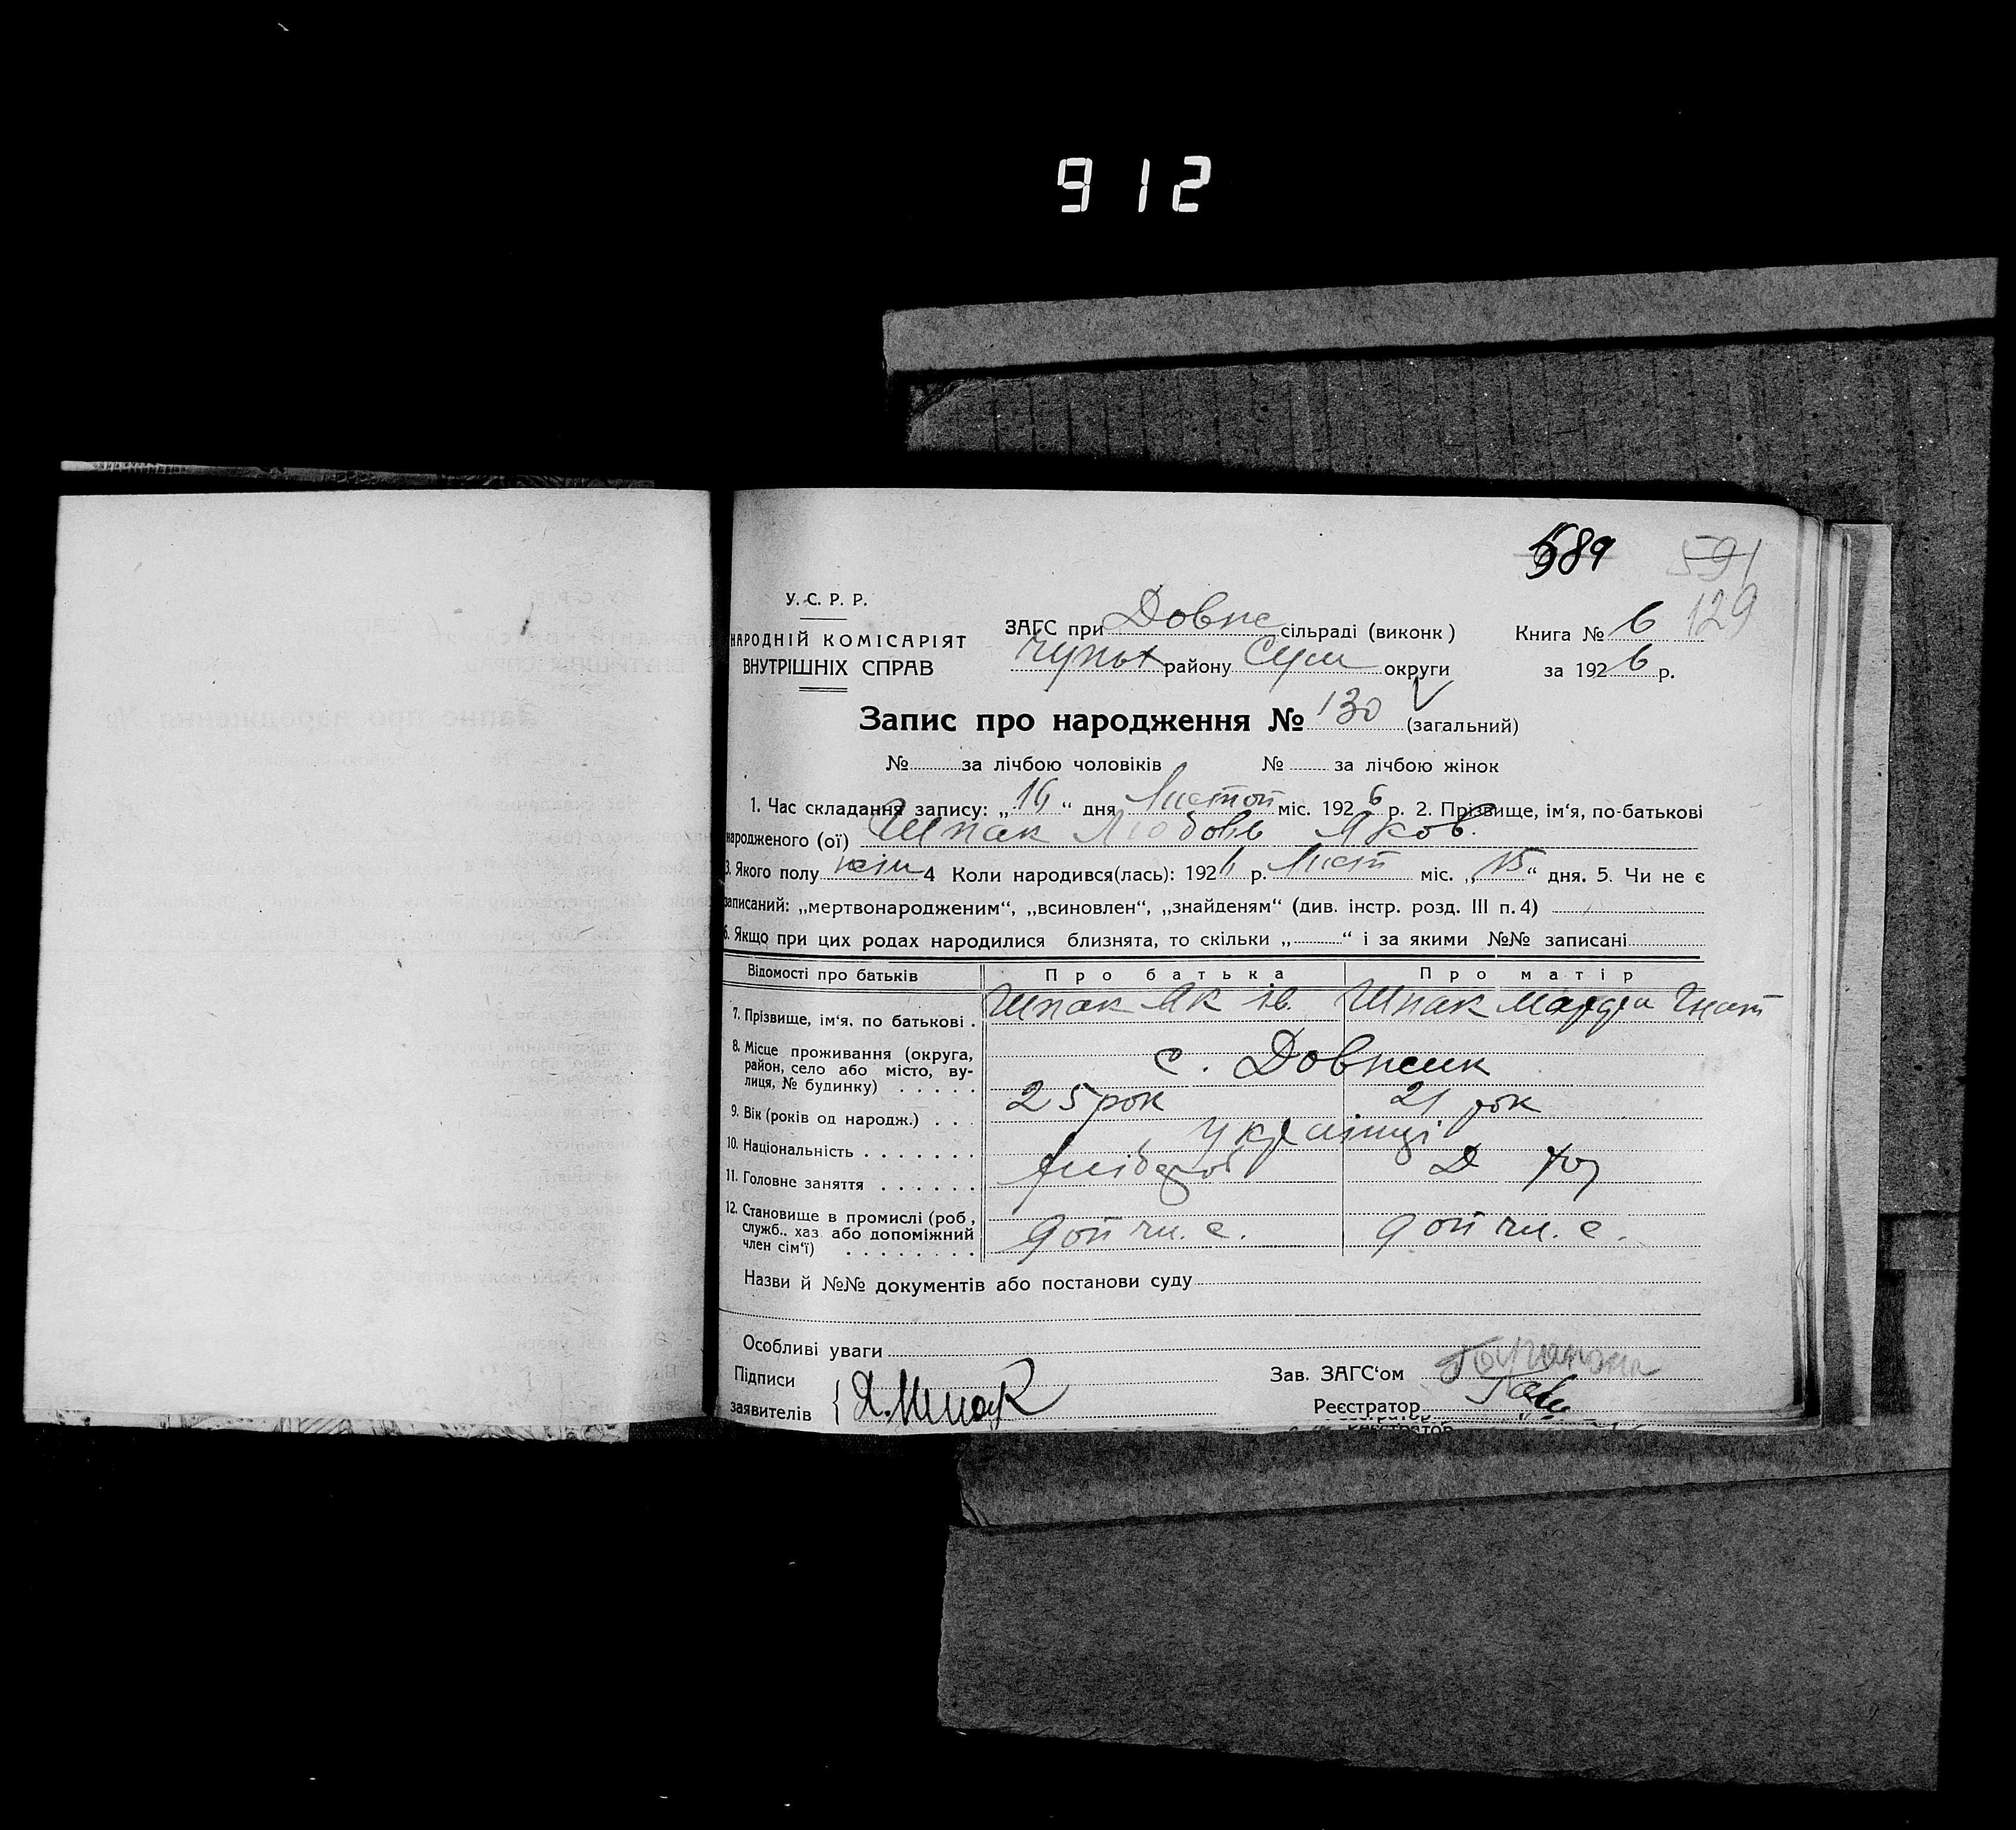 912
589 591
У. С. Р. Р.
129
НАРОДНІЙ КОМІСАРІЯТ
ВНУТРІШНІХ СПРАВ
ЗАГС при Довж сільраді (виконк) Книга № 6
району Сум округи за 1926 р.
Запис про народження № 130 (загальний)
№ за лічбою чоловіків № за лічбою жінок
1. Час складання запису: „16“ дня Листоп міс. 1926 р. 2. Прізвище, ім‘я, по-батькові
народженого (ої) Шпак Любовь Яков.
3. Якого полу жін 4 Коли народився(лась): 1926 р. Лист міс. „15“ дня. 5. Чи не є
записаний: „мертвонародженим“, „всиновлен“, „знайденям“ (див. інстр. розд. III п. 4)
6. Якщо при цих родах народилися близнята, то скільки „ “ і за якими №№ записані
Відомості про батьків Про батька Про матір
7. Прізвище, ім‘я, по батькові . Шпак Як Ів. Шпак Марфа Гнат
8. Місце проживання (округа,
район, село або місто, ву-
лиця, № будинку) . . . . . с. Довжик
9. Вік (років од народж.) . . . 25 рок 21 рок
10. Національність . . . . . . . українці
11. Головне заняття . . . . . . хлібороб
12. Становище в промислі (роб,
служб., хаз або допоміжний
член сім‘ї) . . . . . . . . доп чл. с. доп чл. с.
Назви й №№ документів або постанови суду
Особливі уваги
Підписи
заявителів { Я. Шпак
Зав. ЗАГС‘ом
Реєстратор